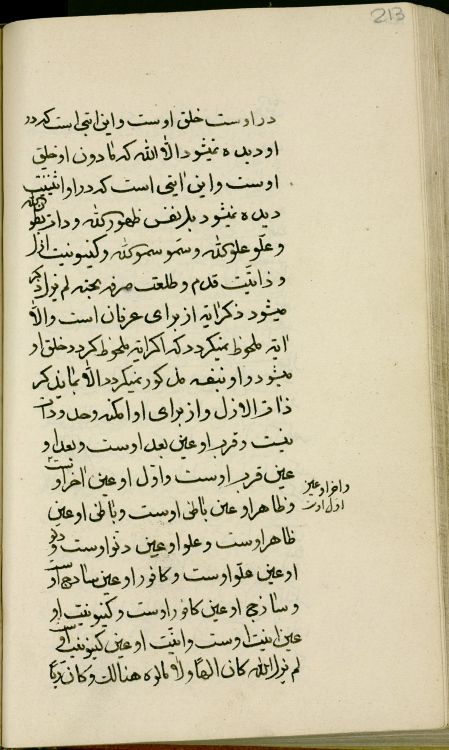 213
در اوست خلق اوست و این ایتی است که در
او دیده نمیشود الا الله که مادون او خلق
اوست و این ایتی است که در او اثنینیت
دیده نمیشود بل نفس ظهور الله و ذات بطون الله
و علو علو الله و سمو سمو الله و کینونیت ازل
و ذاتیت قدم و طلعت صرفه بحته لم یزل ذکر
میشود ذکر ایه از برای عرفان است و الا
ایه ملحوظ نمیگردد که اگر ایه ملحوظ گردد خلق او
میشود و او بنفسه مذکور نمیگردد الا بما یذکر
ذات الازل و از برای او امکنه وحد و ذات
نیست و قرب او عین بعد اوست و بعد او
عین قرب اوست و اول او عین اخر اوست
و اخر او عین
اول اوست
و ظاهر او عین باطن اوست و باطن او عین
ظاهر اوست و علو او عین دنو اوست و دنو
او عین علو اوست و کافور او عین ساذج اوست
و ساذج او عین کافور اوست و کینونیت او
عین انیت اوست و انیت او عین کینونیت اوست
لم یزل الله کان الها و لا مالوه هنالک و کان ربا